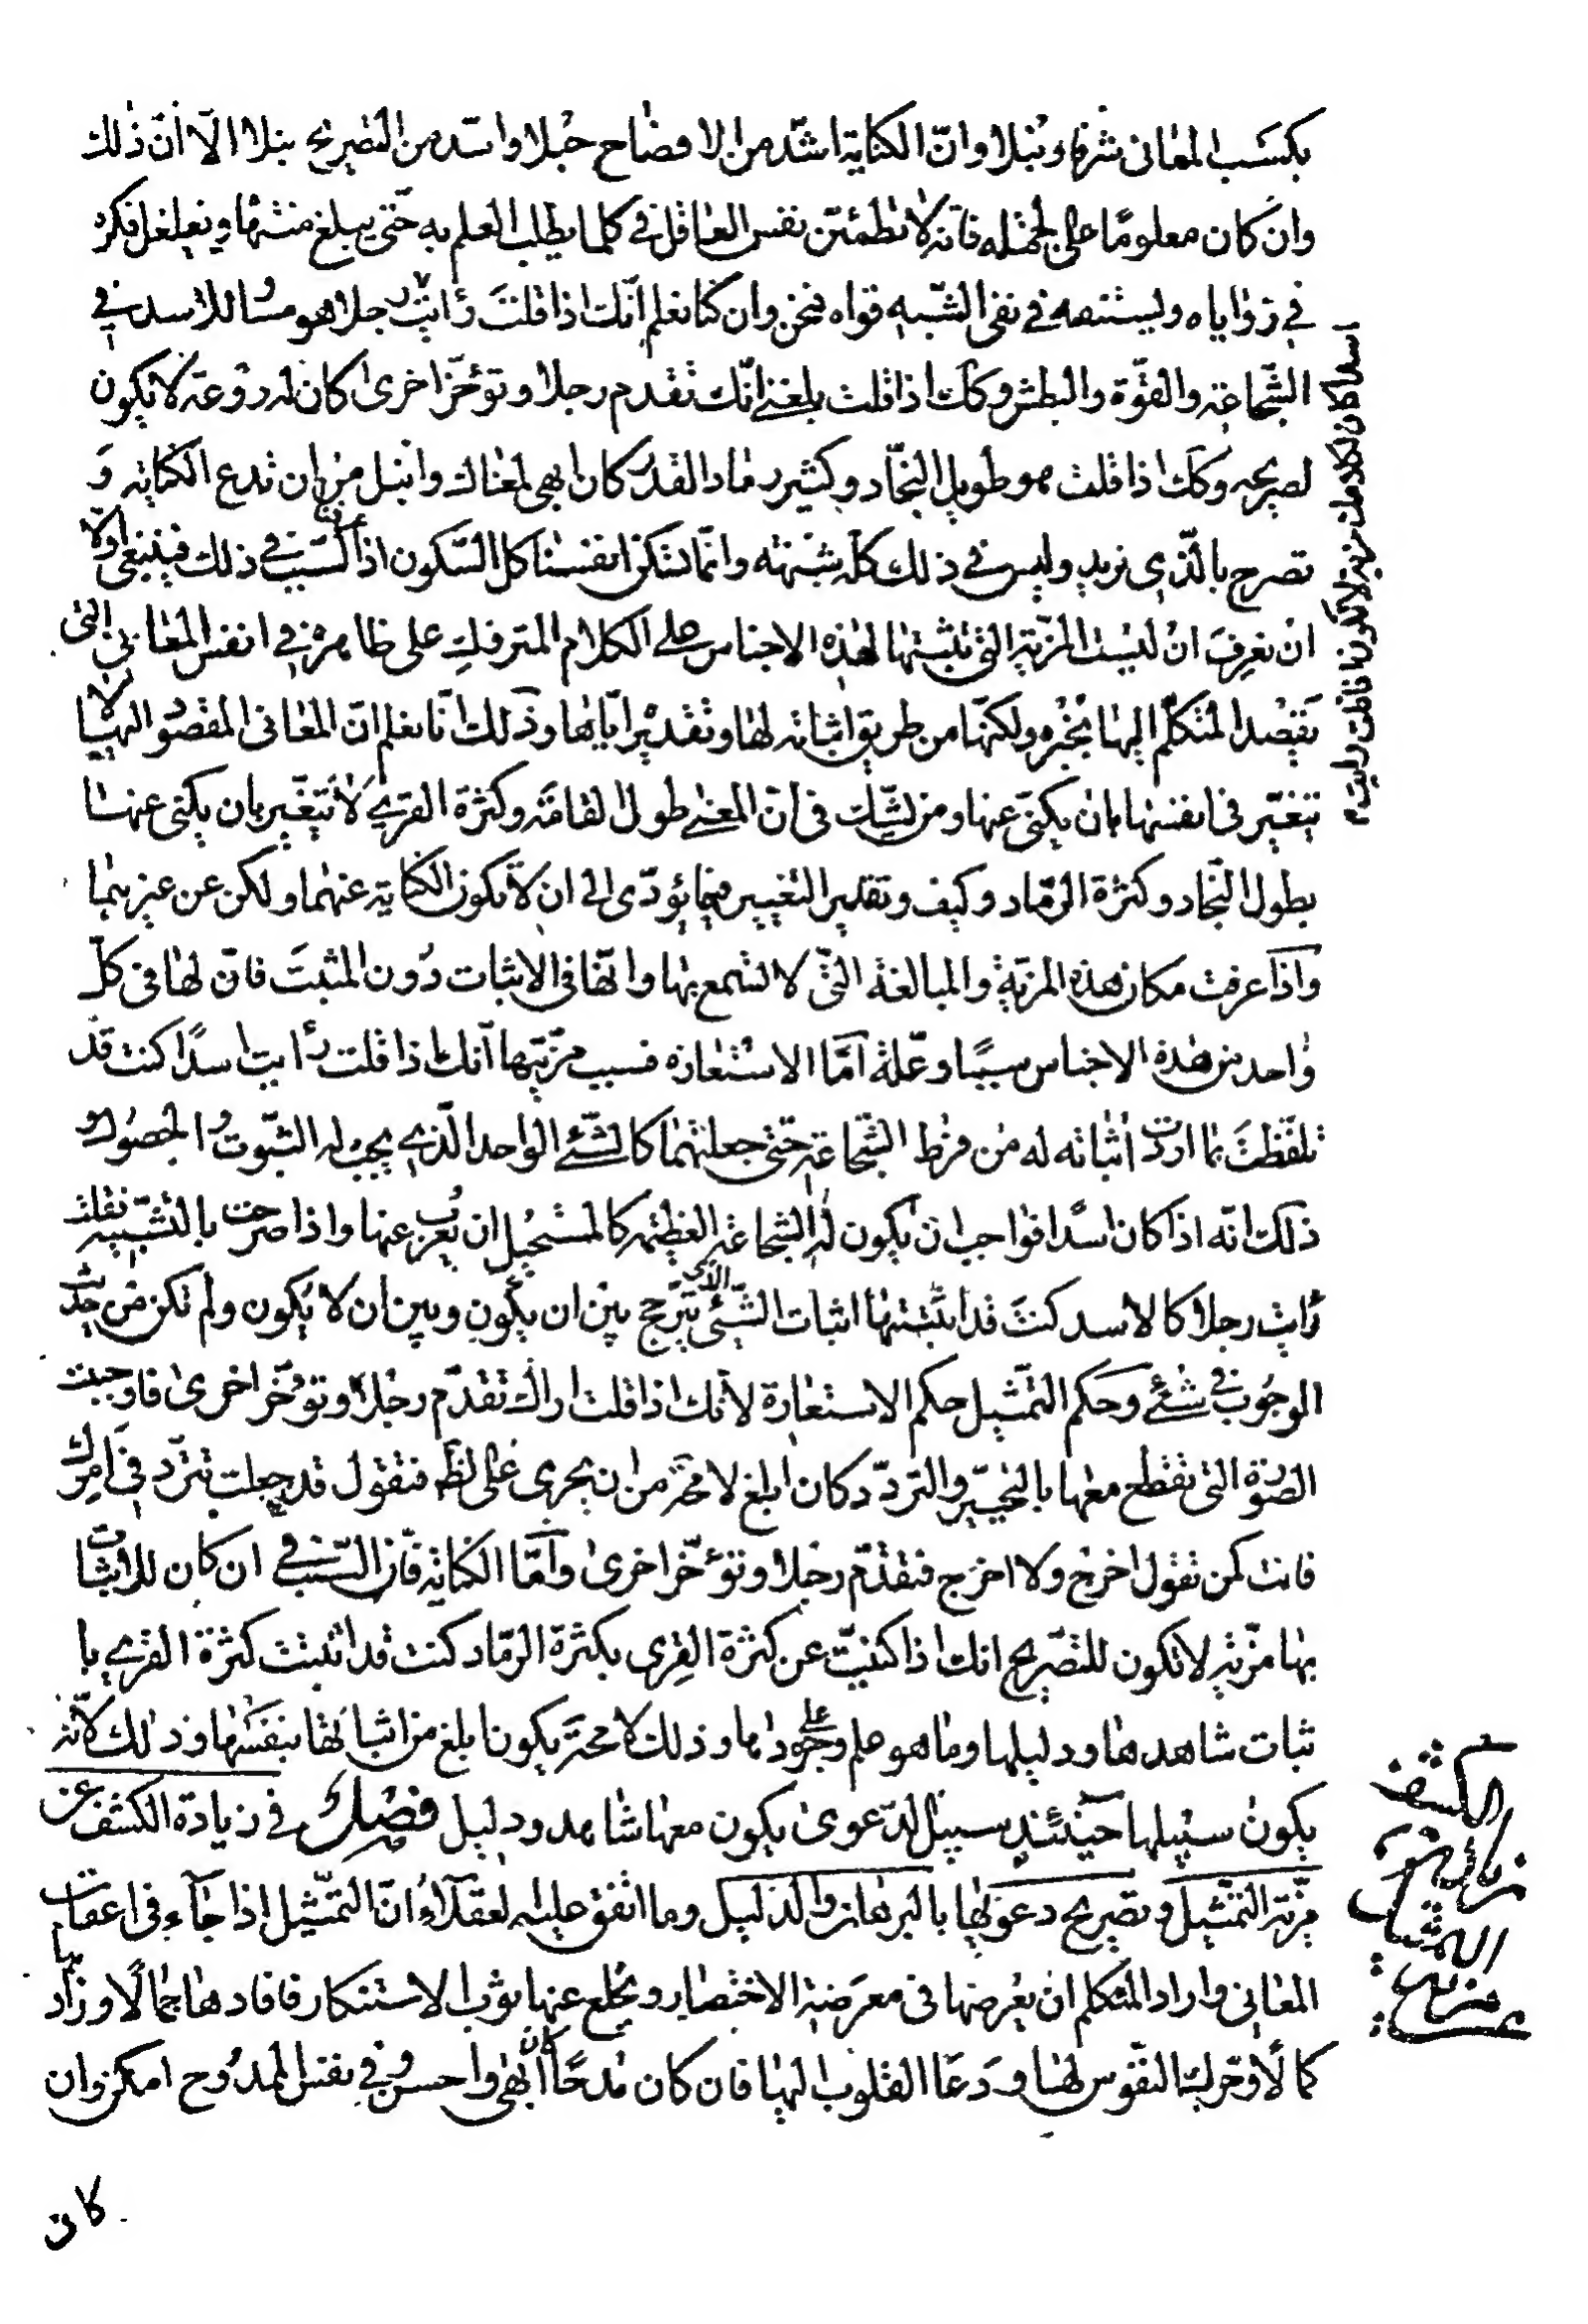 يكسب المعانى شرفا ونبلا وان الكناية اشد من الافضاح حبلا واسد من التصريح نبلا الا ان ذلك
وان كان معلوما على الجملة فانه لا تطمئن نفس العاقل فى كلما يطلب العلم به حتى يبلغ منتهاه ويغلغل فكره
فى زواياه وليستنصه فى نفى الشبه قواه فنحن وان كنا نعلم انك اذا قلت رايت رجلا هو مساو للاسد فى
الشجاعة والقوة والبطش وكك اذا قلت بلغنى انك تقدم رجلا وتؤخر اخرى كان له روعة لا تكون
لصريحه وكك اذا قلت هو طويل النجاد وكثير رماد القدر كان ابهى لمعناك وانبل من ان تدع الكناية و
تصرح بالذى نريد وليس فى ذلك كله شبهة وانما تسكن انفسنا كل السكون اذا عرفنا السبب فى ذلك فينبغى اولا
ان نعرف ان ليست المزية التى نثبتها لهذه الاجناس على الكلام المتروك على ظاهره فى انفس المعانى التى
يقصد المتكلم اليها بخبره ولكنها من طريق اثباته لها وتقديره اياها وذلك انا نعلم ان المعانى المقصود اليها لا
تتغير فى انفسها بان يكنى عنها ومن يشك فى ان المعنى طول القامة وكثرة القرى لا يتغير بان يكنى عنها
بطول النجاد وكثرة الرماد وكيف وتقدير التغيير فيها يؤدى الى ان لا يكون الكناية عنهما ولكن عن غيرهما
واذا عرفت مكان هذه المزية والمبالغة التى لا تسمع بها وانها فى الاثبات دون المثبت فان لها فى كل
واحد من هذه الاجناس سببا وعلة اما الاستعارة فسبب مزيتها انك اذا قلت رايت اسدا كنت قد
تلفظت بما اردت اثباته له من فرط الشجاعة حتى جعلتهما كالشىء الواحد الذى يجب له الثبوت والحصول و
ذلك انه اذا كان اسدا فواجب ان يكون له الشجاعة العظيمة كالمستحيل ان يعرب عنها واذا صرحت بالتشبيه فقلت
رايت رجلا كالاسد كنت قد اثبتها اثبات الشىء الذى يترجح بين ان يكون وبين ان لا يكون ولم تكن من حديث
الوجوب فى شىء وحكم التمثيل حكم الاستعارة لانك اذا قلت اراك تقدم رجلا وتؤخر اخرى فاوجبت
الصورة التى تقطع معها بالتحير والتردد كان ابلغ لا محة من ان يجرى على لظه فتقول قد جعلت تتردد فى امرك
فانت كمن تقول اخرج ولا اخرج فتقدم رجلا وتؤخر اخرى واما الكناية فان السبب فى ان كان للاثبات
بها مزية لا تكون للتصريح انك اذا كنيت عن كثرة القرى بكثرة الرماد كنت قد اثبتت كثرة القرى با
ثبات شاهدها ودليلها وما هو علم على وجودها وذلك لا محة يكون ابلغ من اثباتها بنفسها وذلك لانه
يكون سبيلها حينئذ سبيل الدعوى يكون معها شاهد ودليل فصل فى زيادة الكشف عن
مزية التمثيل وتصريح دعويها بالبرهان والدليل وما اتفق عليه العقلاء ان التمثيل اذا جاء فى اعقاب
المعانى واراد المتكلم ان يعرضها فى معرضة الاختصار ويخلع عنها ثوب الاستنكار فافادها جمالا وزادها
كمالا وحركت النفوس لها ودعا القلوب اليها فان كان مدحا كان ابهى واحسن وفى نفس الممدوح امكن وان
كان
اسدا كان لكلامك مزية لا تكون اذا قلت رايت م
الكشف